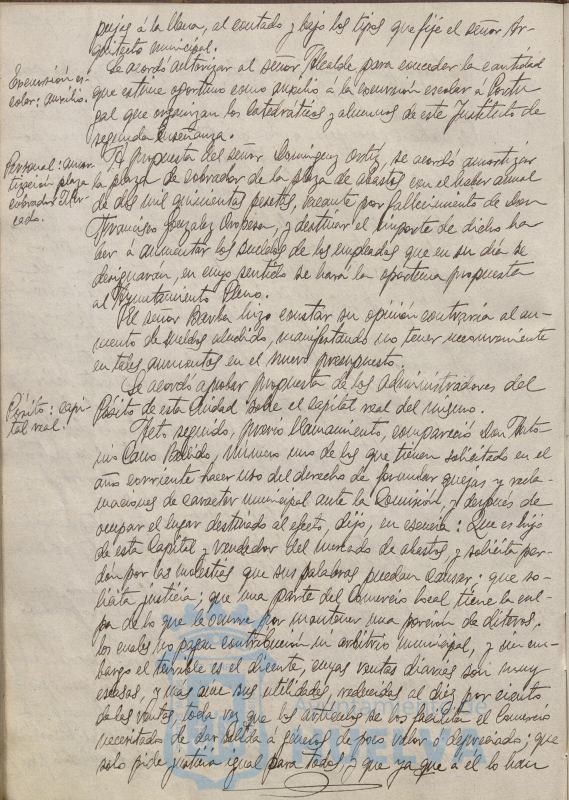 pujas á la llana, al contado y bajo los tipos que fije el señor Ar-
quitecto municipal.
Excursión es-
colar: auxilio.
Se acordó autorizar al señor Alcalde para conceder la cantidad
que estime oportuno como auxilio a la excursión escolar a Portu-
gal que organizan los catedráticos y alumnos de este Instituto de
segunda Enseñanza.
Personal: amor-
tización plaza
cobrador Mer-
cado.
A propuesta del señor Domínguez Ortiz, se acordó amortizar
la plaza de cobrador de la plaza de abastos con el haber anual
de dos mil quinientas pesetas, vacante por fallecimiento de Don
Francisco González Oropesa, y destinar el importe de dicho ha-
ber á aumentar los sueldos de los empleados que en su día se
designarán, en cuyo sentido se hará la oportuna propuesta
al Ayuntamiento Pleno.
El señor Barba hizo constar su opinión contraria al au-
mento de sueldos aludido, manifestando no tener inconveniente
en tales aumentos en el nuevo presupuesto.
Pósito: capi-
tal real.
Se acordó aprobar propuesta de los Administradores del
Pósito de esta Ciudad sobre el capital real del mismo.
Acto seguido, previo llamamiento, compareció Don Anto-
nio Cano número uno de los que tienen solicitado en el
año corriente hacer uso del derecho de formular quejas y recla-
maciones de carácter municipal ante la Comisión, y después de
ocupar el lugar destinado al efecto, dijo, en esencia: Que es hijo
de esta Capital y vendedor del mercado de abastos y solicita per-
dón por las molestias que sus palabras puedan causar; que so-
licita justicia; que una parte del Comercio local tiene la cul-
pa de lo que le ocurre por mantener una porción de diteros,
los cuales no pagan contribución ni arbitrio municipal, y sin em-
bargo el es el dicente, cuyas ventas diarias son muy
escasas, y más aún sus utilidades, reducidas al diez por ciento
de las ventas, toda vez que los artículos se los facilita el Comercio
necesitado de dar salida á géneros de poco valor ó depreciado; que
solo pide justicia igual para todos, y que ya que á él lo han
Ayuntamiento de
HUELVA